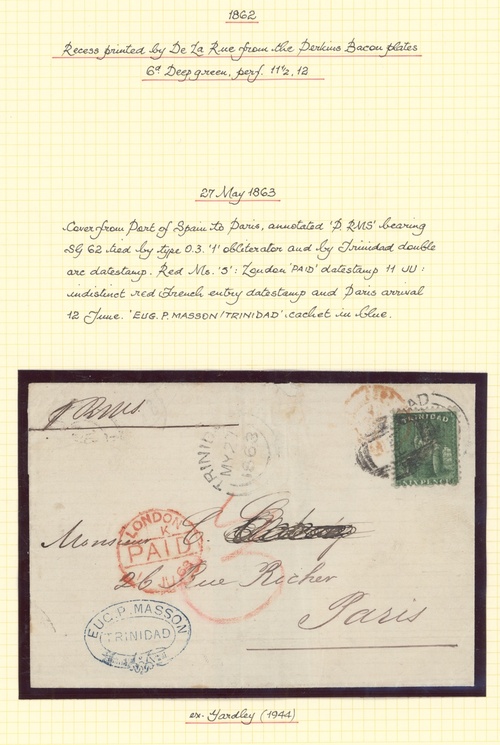 1862
Recess printed by De La Rue from the Perkins Bacon plates
6d Deep green, perf. 11½, 12
27 May 1863
Cover from Port of Spain to Paris, annotated 'P RMS' bearing
SG 62 tied by type 0.3. '1' obliterator and by Trinidad double
arc datestamp. Red Ms. '5': London 'PAID' datestamp 11 JU:
indistinct red French entry datestamp and Paris arrival
12 June. 'EUG. P. MASSON/TRINIDAD' cachet in blue.
p RMS.
TRINIDAD
SIX PENCE
TRINID
MY 27
1863
LONDON
K
PAID
JU 63
5
Monsieur C
26 Rue Richer
Paris
EUG. P. MASSON
TRINIDAD
ex. Yardley (1944)